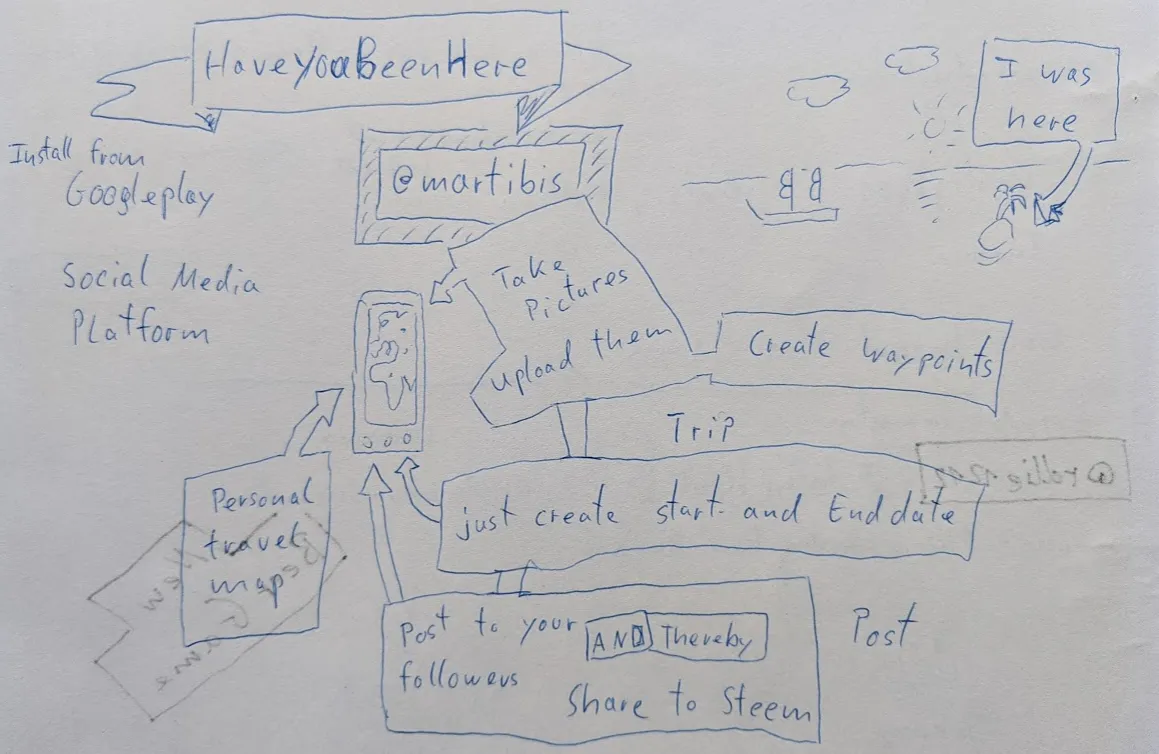 HaveyouBeenHere
I was
here
Install from
Googleplay
@martibis
Social Media
Platform
Take
Pictures
upload them
Create Waypoints
Trip
just create start and End date
Personal
travel
map
Post to your
followers
AND Thereby
Share to Steem
Post